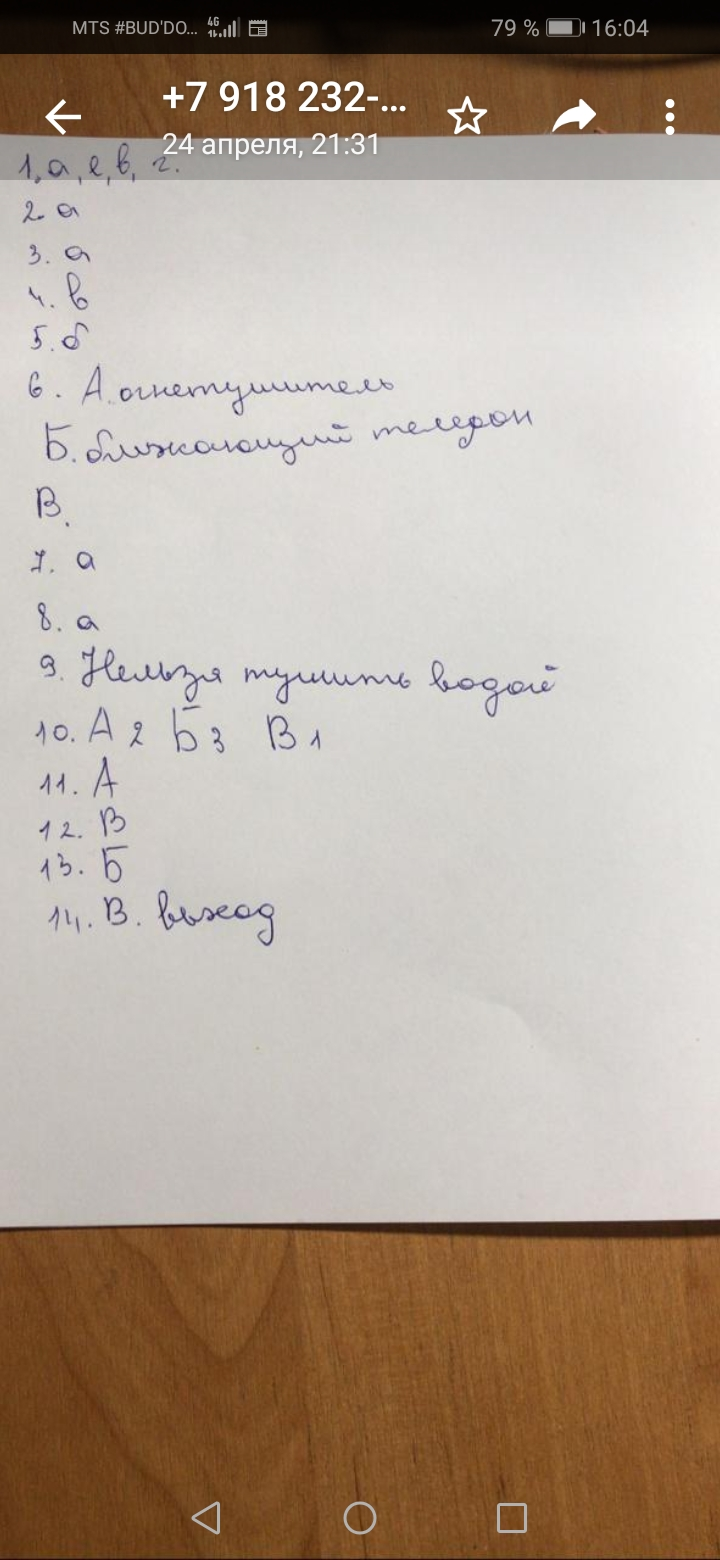 MTS #BUD'DO... 4G 79 % 16:04
+7 918 232-...
24 апреля, 21:31
1. а, е, в, г.
2. а
3. а
4. в
5. б
6. А. огнетушитель
Б. ближающий телефон
В.
7. а
8. а
9. Нельзя тушить водой
10. А 2 Б 3 В 1
11. А
12. В
13. Б
14. В. выход